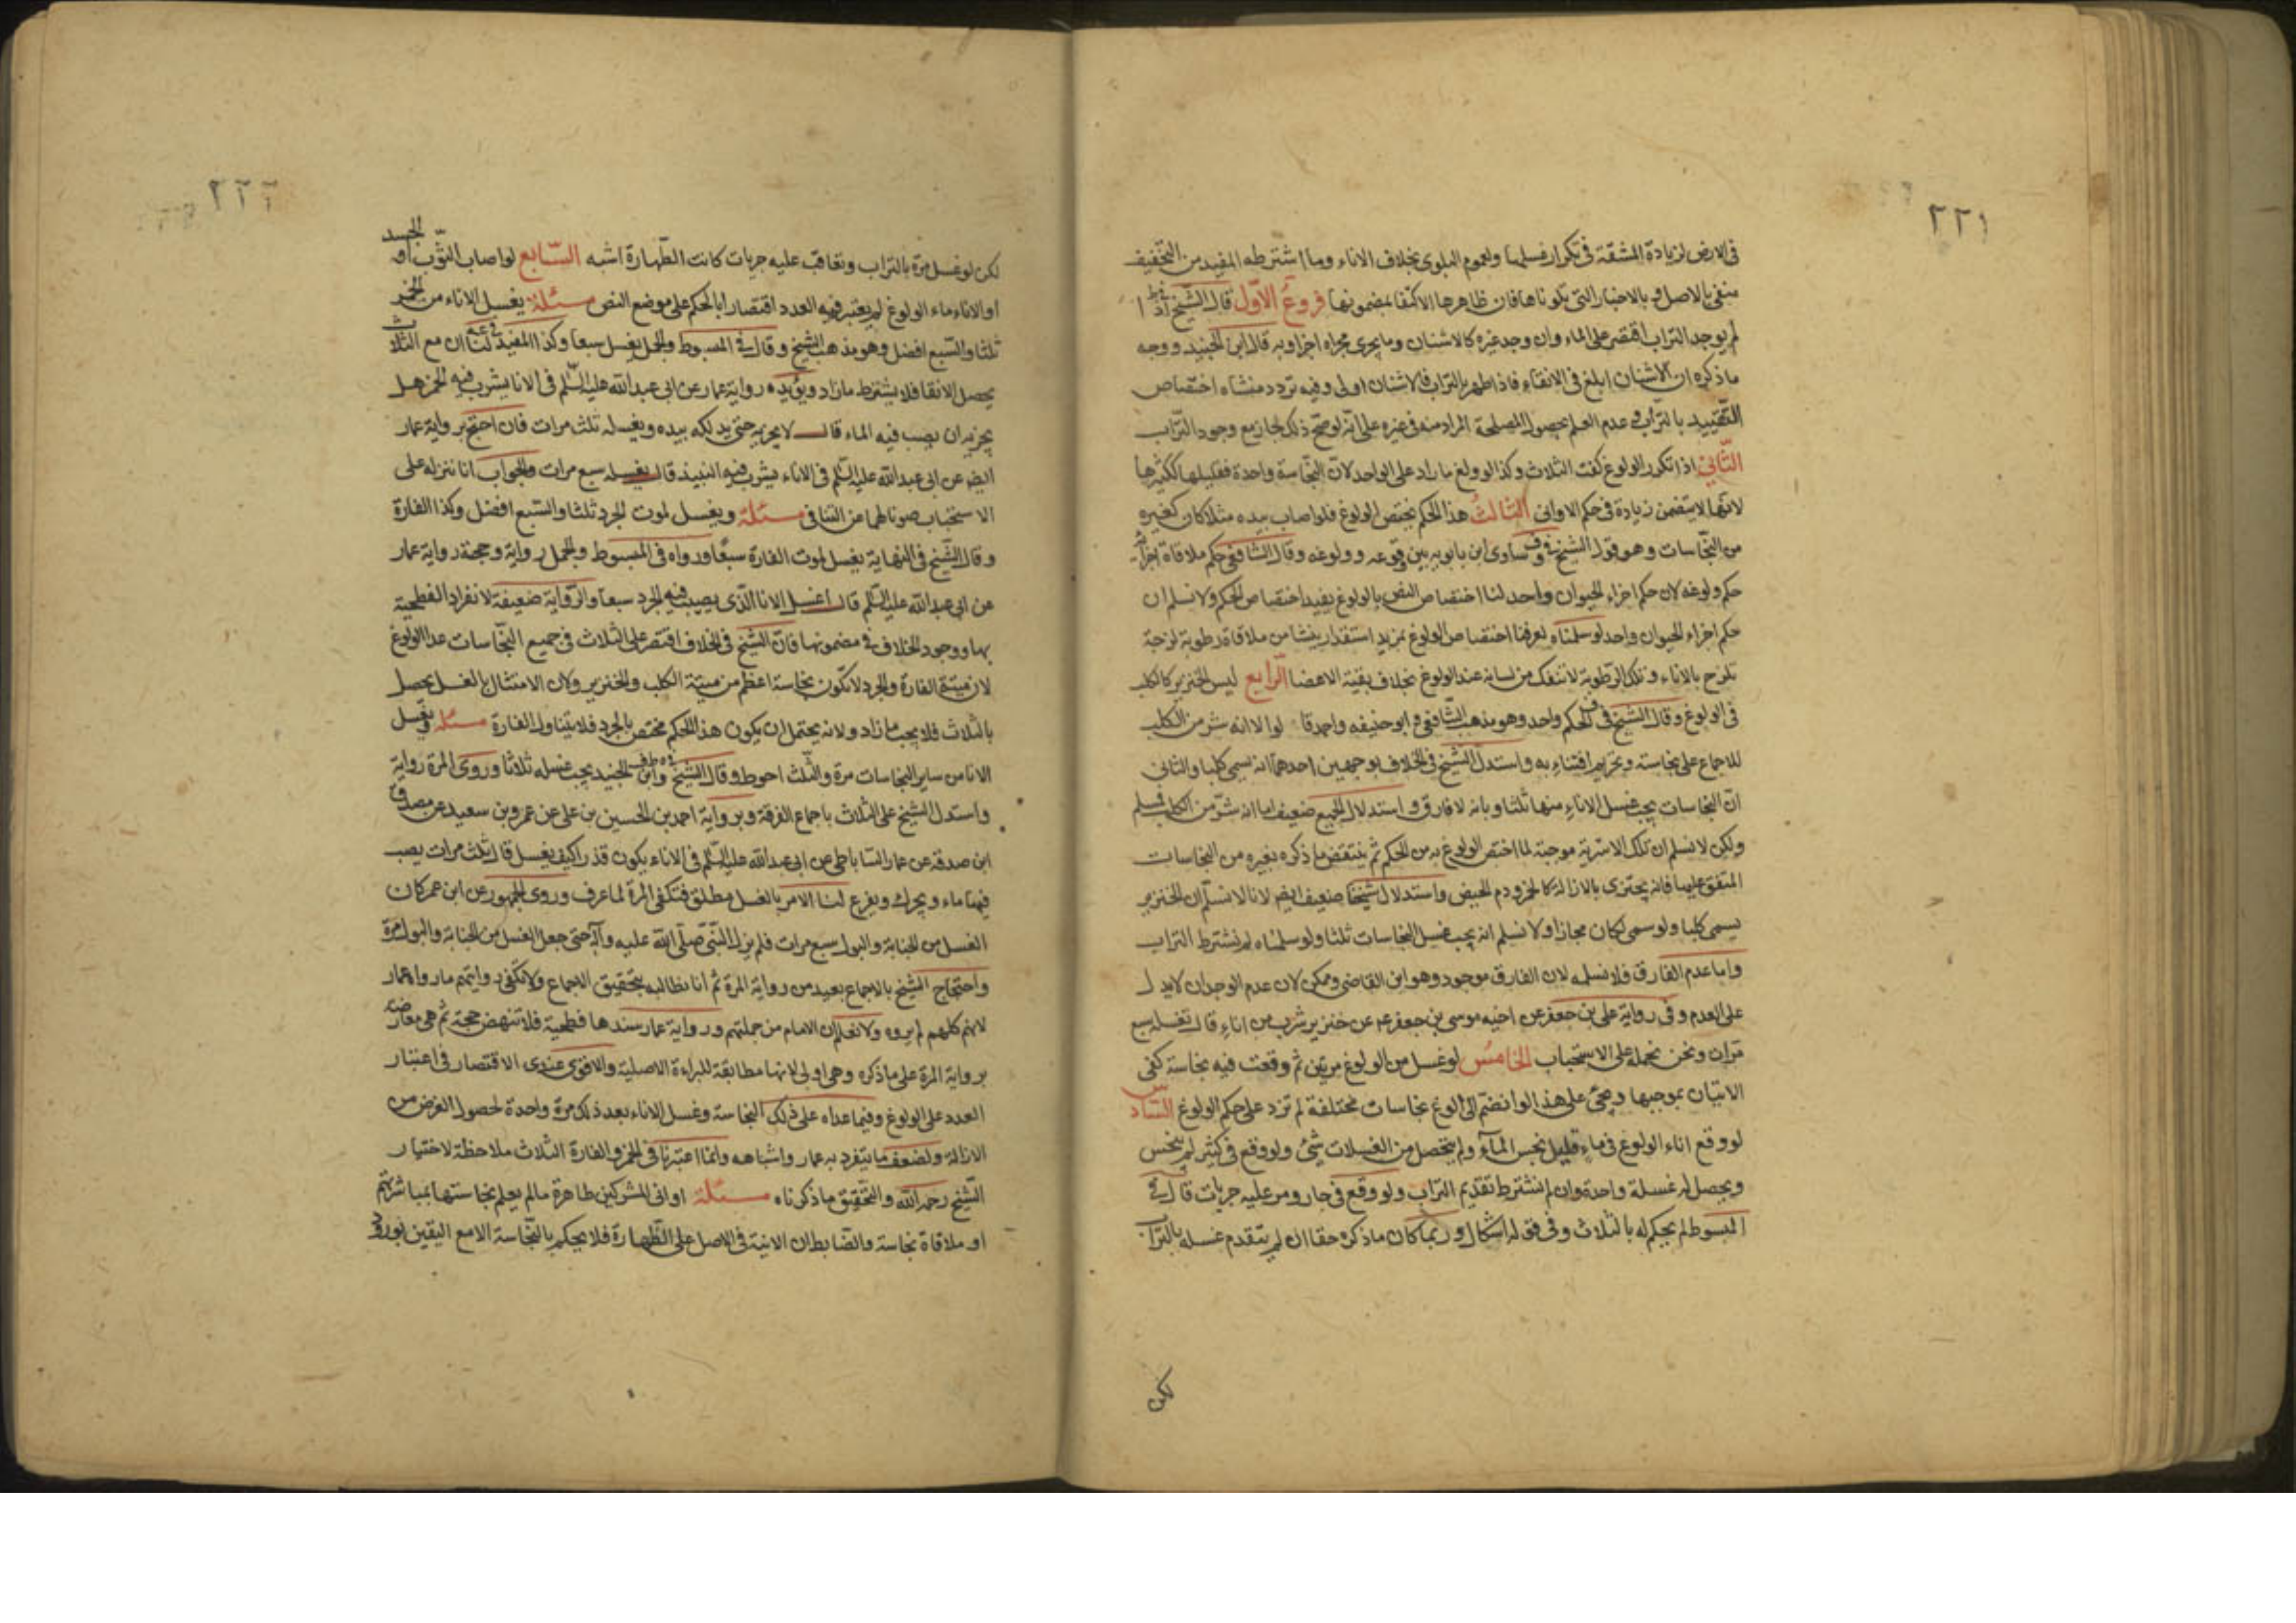 ٢٢١
فى الارض لزيادة المشقة فى تكرار غسلها ولعموم البلوى بخلاف الاناء وما اشترطه المفيد من التجفيف
منفى بالاصل و بالاخبار التى تلوناها فان ظاهرها الاكتفا بمضمونها فروع الاول قال الشيخ فى ط اذا
لم يوجد التراب اقتصر على الماء وان وجد غيره كالاشنان وما يجرى مجراه اجزا وبه قال ابن الجنيد ووجه
ما ذكره ان الاشنان ابلغ فى الانقاء فاذا طهر بالتراب فالاشنان اولى وفيه تردد منشاه اختصاص
التقييد بالتراب و عدم العلم بحصول المصلحة المرادمنه فى غيره على انه لو صح ذلك لجاز مع وجود التراب
الثانى اذا تكرر الولوغ كفت الثلاث وكذا لو ولغ ما زاد على الواحد لان النجاسة واحدة فقليلها ككثيرها
لانها لا يتضمن زيادة فى حكم الاوانى الثالث هذا الحكم يختص الولوغ فلو اصاب بيده مثلا كان كغيره
من النجاسات وهو قول الشيخ فى ف وساوى ابن بابويه بين وقوعه وولوغه وقال الشافعى حكم ملاقاة اجزائه
حكم ولوغه لان حكم اجزاء الحيوان واحد لنا اختصاص النص بالولوغ يفيد اختصاص الحكم ولا نسلم ان
حكم اجزاء الحيوان واحد لو سلمناه لعرفنا اختصاص الولوغ بمزيد استقذار ينشا من ملاقاة رطوبة لزجة
تلزج بالاناء وتلك الرطوبة لا تنفك من لسانه عند الولوغ بخلاف بقية الاعضا الرابع ليس الخنزير كالكلب
فى الولوغ وقال الشيخ فى ف الحكم واحد وهو مذهب الشافعى و ابو حنيفه واحمد قالوا لانه شر من الكلب
للاجماع على نجاسته وتحريم اقتناءه به واستدل الشيخ فى الخلاف بوجهين احدهما انه يسمى كلبا والثانى
ان النجاسات يجب غسل الاناء منها ثلثا وبانه لا فارق و استدلال الجميع ضعيف اما انه شر من الكلب فمسلم
ولكن لا نسلم ان تلك الاشرية موجبة لما اختص الولوغ به من الحكم ثم ينتقض ما ذكره بغيره من النجاسات
المتفق عليها فانه يجتزى بالازالة كالخمر و دم الحيض واستدلال شيخنا ضعيف ايضا لانا لا نسلم ان الخنزير
يسمى كلبا ولو سمى لكان مجازا ولا نسلم انه يجب غسل النجاسات ثلثا ولو سلمناه لم نشترط التراب
واما عدم الفارق فلا نسلمه لان الفارق موجود وهو ابن القاضى وممكن لان عدم الوجدان لا يدل
على العدم و فى رواية على بن جعفر عن اخيه موسى بن جعفر عم عن خنزير شرب من اناء قال تغسله سبع
مرات ونحن نحمله على الاستحباب الخامس لو غسل من الولوغ مرتين ثم وقعت فيه نجاسة كفى
الاتيان بموجبها و يجئ على هذا لو انضم الى الولوغ نجاسات مختلفة لم تزد على حكم الولوغ السادس
لو وقع اناء الولوغ فى ماء قليل نجس الماء ولم يتحصل من الغسلات شئ ولو وقع فى كثير لم ينجس
ويحصل له غسلة واحدة وان لم نشترط تقديم التراب ولو وقع فى جار ومر عليه جريات قال فى
المبسوط لم يحكم له بالثلاث وفى قوله اشكال وربما كان ما ذكره حقا ان لم يتقدم غسله بالتراب
لكن
٢٢٢
لكن لو غسل مرة بالتراب وتعاقب عليه جريات كانت الطهارة اشبه السابع لو اصاب الثوب او الجسد
او الاناء ماء الولوغ لم يعتبر فيه العدد اقتصارا بالحكم على موضع النص مسئلة يغسل الاناء من الخمر
ثلثا والسبع افضل وهو مذهب الشيخ و قال فى المبسوط والجمل يغسل سبعا وكذا المفيد لنا ان مع الثلاث
يحصل الانقا فلا يشترط ما زاد ويؤيده رواية عمار عن ابى عبد الله عليه السلم فى الانا يشرب فيه الخمر هل
يجزيه ان يصب فيه الماء قال لا يجزيه حتى يدلكه بيده ويغسله ثلث مرات فان احتج برواية عمار
ايضا عن ابى عبد الله عليه السلم فى الاناء يشرب فيه النبيذ قال يغسله سبع مرات والجواب انا ننزله على
الاستحباب صونا لهما عن التنافى مسئلة ويغسل لموت الجرد ثلثا والسبع افضل وكذا الفارة
وقال الشيخ فى النهاية يغسل لموت الفارة سبعا ورواه فى المبسوط والجمل رواية وحجته رواية عمار
عن ابى عبد الله عليه السلم قال اغسل الانا الذى يصيب فيه الجرد سبعا والرواية ضعيفة لانفراد الفطحية
بها ووجود الخلاف فى مضمونها فان الشيخ فى الخلاف اقتصر على الثلاث فى جميع النجاسات عدا الولوغ
لان ميتة الفارة والجرد لا تكون نجاسة اعظم من ميتة الكلب والخنزير ولان الامتثال بالغسل يحصل
بالثلاث فلا يجب ما زاد ولانه يحتمل ان يكون هذا الحكم مختص بالجرد فلا يتناول الفارة مسئلة ويغسل
الانا من ساير النجاسات مرة والثلث احوط وقال الشيخ فى ط وف وابن الجنيد يجب غسله ثلاثا وروى المرة رواية
واستدل الشيخ على الثلاث باجماع الفرقة وبرواية احمد بن الحسين بن على عن عمرو بن سعيد عن مصدق
ابن صدقه عن عمار الساباطى عن ابى عبد الله عليه السلم فى الاناء يكون قذرا كيف يغسل قال ثلث مرات يصب
فيها ماء و يحرك ويفرع لنا الامر بالغسل مطلق فتكفى المرة لما عرف وروى الجمهور عن ابن عمر كان
الغسل من الجنابة والبول سبع مرات فلم يزل النبى صلى الله عليه وآله حتى جعل الغسل من الجنابة والبول مرة
واحتجاج الشيخ بالاجماع بعيد من رواية المرة ثم انا نطالبه بتحقيق الاجماع ولا تكفى روايتهم ما رواه عمار
لانهم كلهم لم يروه ولا نعلم ان الامام من جملتهم ورواية عمار سندها فطحية فلا تنهض حجة ثم هى معارضة
برواية المرة على ما ذكره وهى اولى لانها مطابقة للبراءة الاصلية والاقوى عندى الاقتصار فى اعتبار
العدد على الولوغ وفيما عداه على ذلك النجاسة وغسل الاناء بعد ذلك مرة واحدة لحصول الغرض من
الازالة ولضعف ما يتفرد به عمار واشباهه وانما اعتبرنا فى الخمر والفارة الثلاث ملاحظة لاختيار
الشيخ رحمه الله والتحقيق ما ذكرناه مسئلة اوانى المشركين طاهرة ما لم يعلم نجاستها بمباشرتهم
او ملاقاة نجاسة والضابط ان الانية فى الاصل على الطهارة فلا يحكم بالنجاسة الا مع اليقين بورود